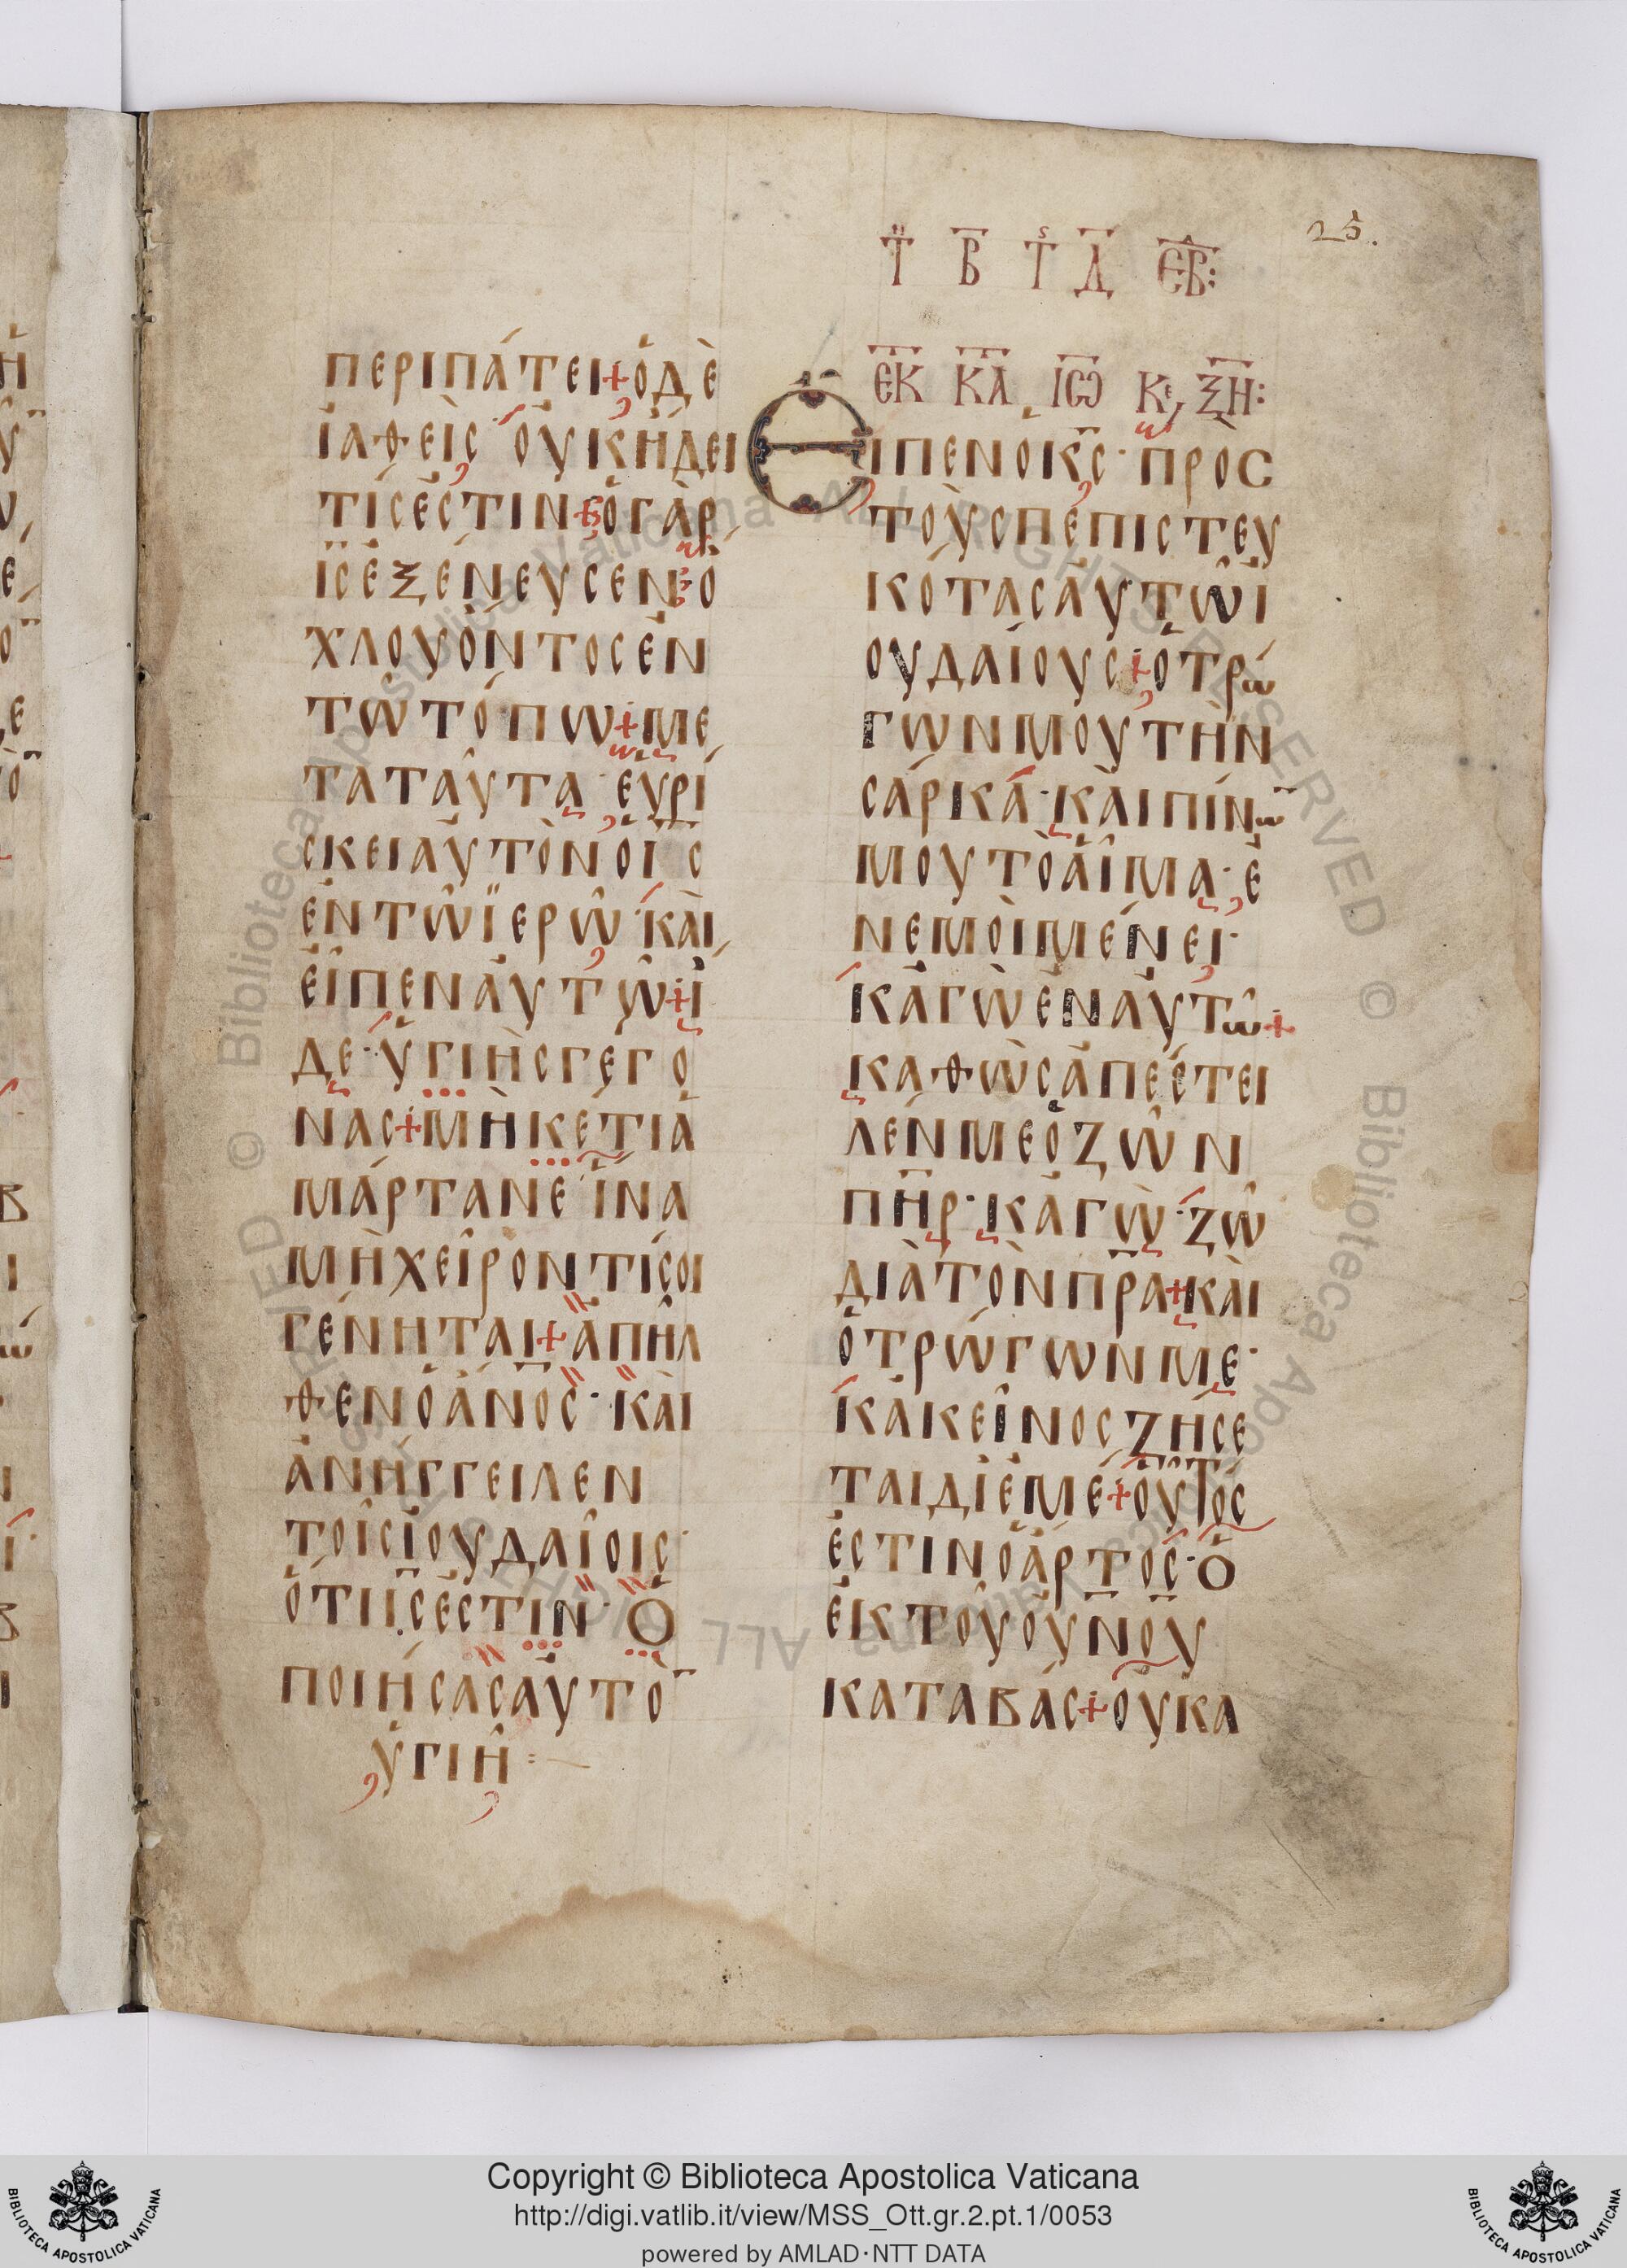 25.
ΠΕΡΙΠΆΤΕΙ+Ὁ ΔῈ
ἸΑΘΕῚΣ ΟΥΚΉΔΕΙ
ΤΊΣ ἘΣΤΙΝ+Ὁ ΓᾺΡ
ΙΣ ἘΞΈΝΕΥΣΕΝ+Ὀ
ΧΛΟΥ ὌΝΤΟΣ ἘΝ
ΤΩ ΤΌΠΩ+ΜΕ
ΤΑ ΤΑΥ͂ΤΑ· ΕΥΡΊ
ΣΚΕΙ ΑΥΤῸΝ Ὁ ΙΣ
ἘΝ ΤΩ͂ ΪΕΡΩ͂· ΚᾺΙ
ΕἾΠΕΝ ἈΥΤΩ͂+Ἴ
ΔΕ· ΥΓΙῊΣ ΓΈΓΟ
ΝΑΣ+ΜΗΚΈΤΙ Ἁ
ΜΆΡΤΑΝΕ ἽΝΑ
ΜῊ ΧΕΙ͂ΡΟΝ ΤΊ ΣΟΙ
ΓΈΝΗΤΑΙ+ἈΠΗ͂Λ
ΘΕΝ Ὁ ἈΝΟΣ· ΚᾺΙ
ἈΝΉΓΓΕΙΛΕΝ
ΤΟΙ͂Σ ἸΟΥΔΑΊΟΙΣ·
ὍΤΙ ΙΣ ἘΣΤΙΝ· Ὁ
ΠΟΙΉΣΑΣ ἈΥΤῸ
ΥΓΙΗ͂
Τῌ Β Τς Δ ΕΒ:
ΕΚ ΚΛ ἸΩ ΚΕ, ΞΗ:
ΕΙΠΕΝ Ὁ ΚΣ· ΠΡΟΣ
ΤΟῪΣ ΠΕΠΙΣΤΕΥ
ΚΌΤΑΣ ἈΥΤΩ͂ Ἰ
ΟΥΔΑΊΟΥΣ+Ὁ ΤΡΏ
ΓΩΝ ΜΟΥ ΤῊΝ
ΣΆΡΚΑ· ΚᾺΙ ΠΊΝΩ
ΜΟΥ ΤῸ ἍΙΜΑ· Ἐ
Ν ΕΜΟῚ ΜΈΝΕΙ·
ΚἈΓῺ ἘΝ ἈΥΤΩ͂+
ΚΑΘῺΣ ἈΠΈΣΤΕΙ
ΛΕΝ ΜΕ Ὁ ΖΩ͂Ν
ΠΗΡ· ΚἈΓῺ· ΖΩ͂
ΔΙᾺ ΤῸΝ ΠΡΑ+ΚᾺΙ
Ὁ ΤΡΏΓΩΝ ΜΕ·
ΚἈΚΕΙ͂ΝΟΣ ΖΉΣΕ
ΤΑΙ ΔΙ ἘΜΕ+ΟΥ͂ΤΌΣ
ἘΣΤΙΝ Ὁ ἌΡΤΟΣ· Ὁ
ἘΚ ΤΟΥ͂ ΟΥΝΟΥ
ΚΑΤΑΒΆΣ+ΟΥ ΚΑ
Copyright © Biblioteca Apostolica Vaticana
http://digi.vatlib.it/view/MSS_Ott.gr.2.pt.1/0053
powered by AMLAD·NTT DATA
BIBLIOTECA APOSTOLICA VATICANA
BIBLIOTECA APOSTOLICA VATICANA